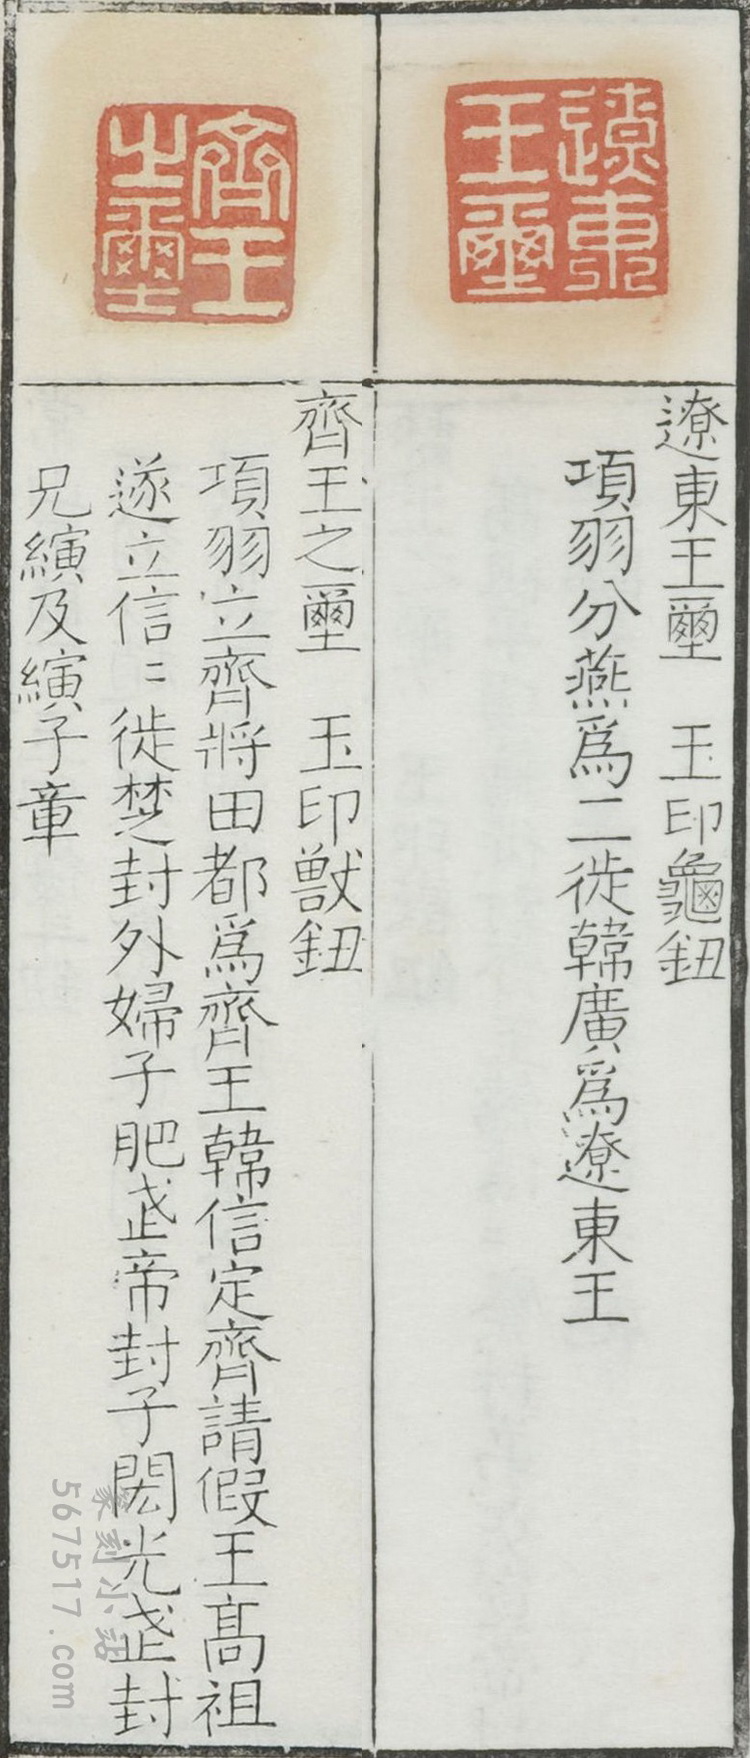 遼東王璽
遼東王壐　玉印龜鈕
項羽分燕為二徙韓廣為遼東王
齊王之璽
齊王之壐　玉印獸鈕
項羽立齊將田都為齊王韓信定齊請假王高祖
遂立信〻徙楚封外婦子肥武帝封子閎光武封
兄縯及縯子章
篆刻小站
567517.com